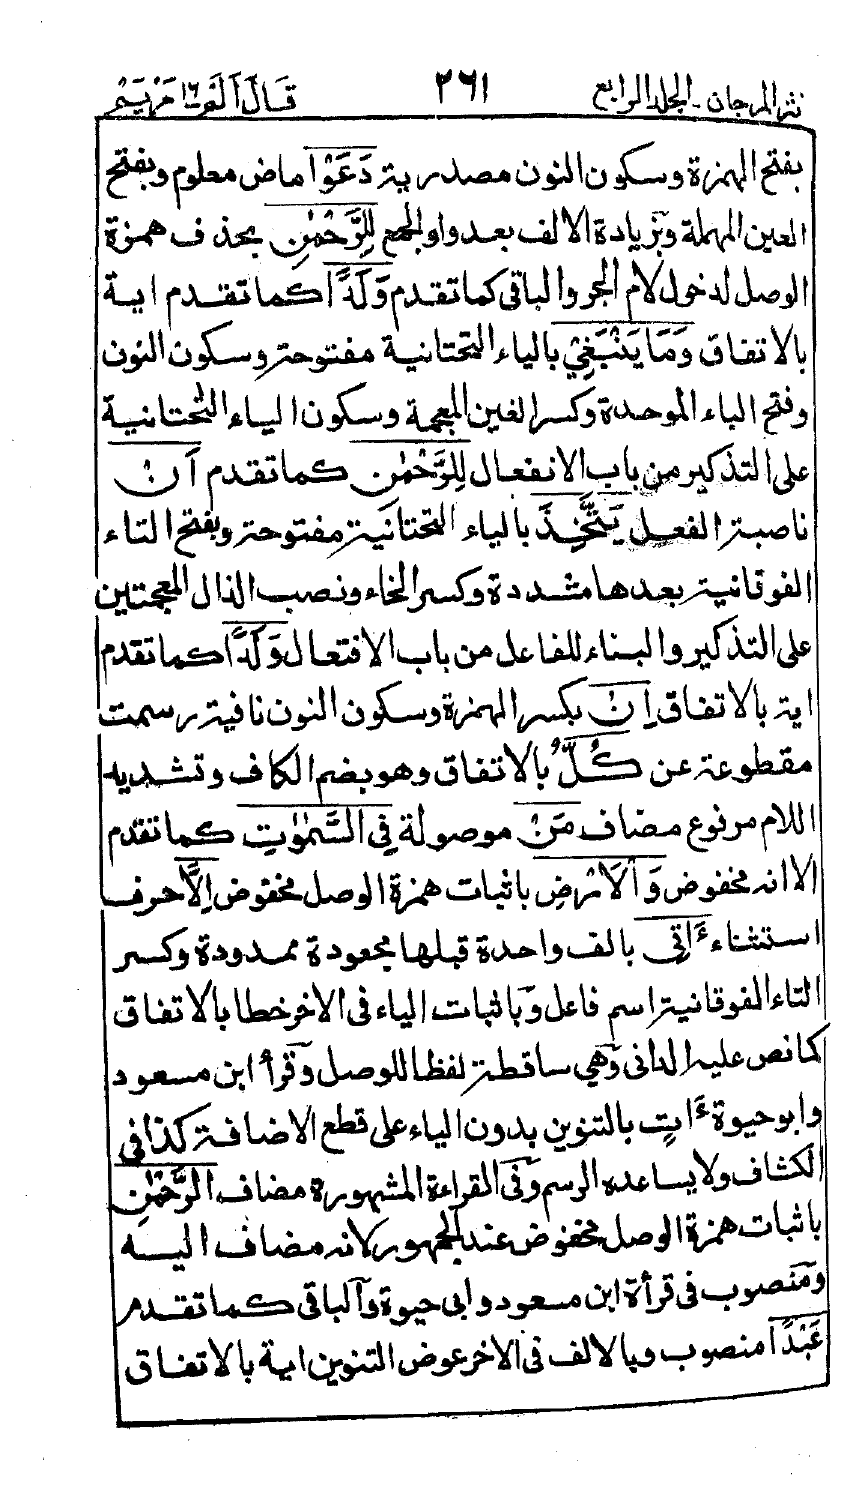 نثر المرجان - المجلد الرابع ٢٦١ قَالَ اَلَمْ ١٦ مَرْيَم
بفتح الهمزة وسكون النون مصدرية دَعَوْا ماض معلوم وبفتح
العين المهملة وبزيادة الالف بعد واو الجمع لِلرَّحْمٰنِ بحذف همزة
الوصل لدخول لام الجر والباقي كما تقدم وَلَدًا كما تقدم اية
بالاتفاق وَمَا يَنْبَغِيْ بالياء التحتانية مفتوحة وسكون النون
وفتح الباء الموحدة وكسر الغين المعجمة وسكون الياء التحتانية
على التذكير من باب الانفعال لِلرَّحْمٰنِ كما تقدم اَنْ
ناصبة الفعل يَتَّخِذَ بالياء التحتانية مفتوحة وبفتح التاء
الفوقانية بعدها مشددة وكسر الخاء ونصب الذال المعجمتين
على التذكير والبناء للفاعل من باب الافتعال وَلَدًا كما تقدم
اية بالاتفاق اِنْ بكسر الهمزة وسكون النون نافية رسمت
مقطوعة عن كُلُّ بالاتفاق وهو بضم الكاف وتشديد
اللام مرفوع مضاف مَنْ موصولة فِي السَّمٰوٰتِ كما تقدم
الا انه مخفوض وَالْاَرْضِ باثبات همزة الوصل مخفوض اِلَّا حرف
استثناء ءَاتِي بالف واحدة قبلها مجعودة ممدودة وكسر
التاء الفوقانية اسم فاعل وباثبات الياء في الاخر خطا بالاتفاق
كما نص عليه الداني وهي ساقطة لفظا للوصل وقرأ ابن مسعود
وابو حيوة ءَاتٍ بالتنوين بدون الياء على قطع الاضافة كذا في
الكشاف ولا يساعده الرسم وفي القراءة المشهورة مضاف الرَّحْمٰنِ
باثبات همزة الوصل مخفوض عند الجمهور لانه مضاف اليه
ومنصوب في قرأة ابن مسعود وابي حيوة والباقي كما تقدم
عَبْدًا منصوب وبالالف في الاخر عوض التنوين اية بالاتفاق